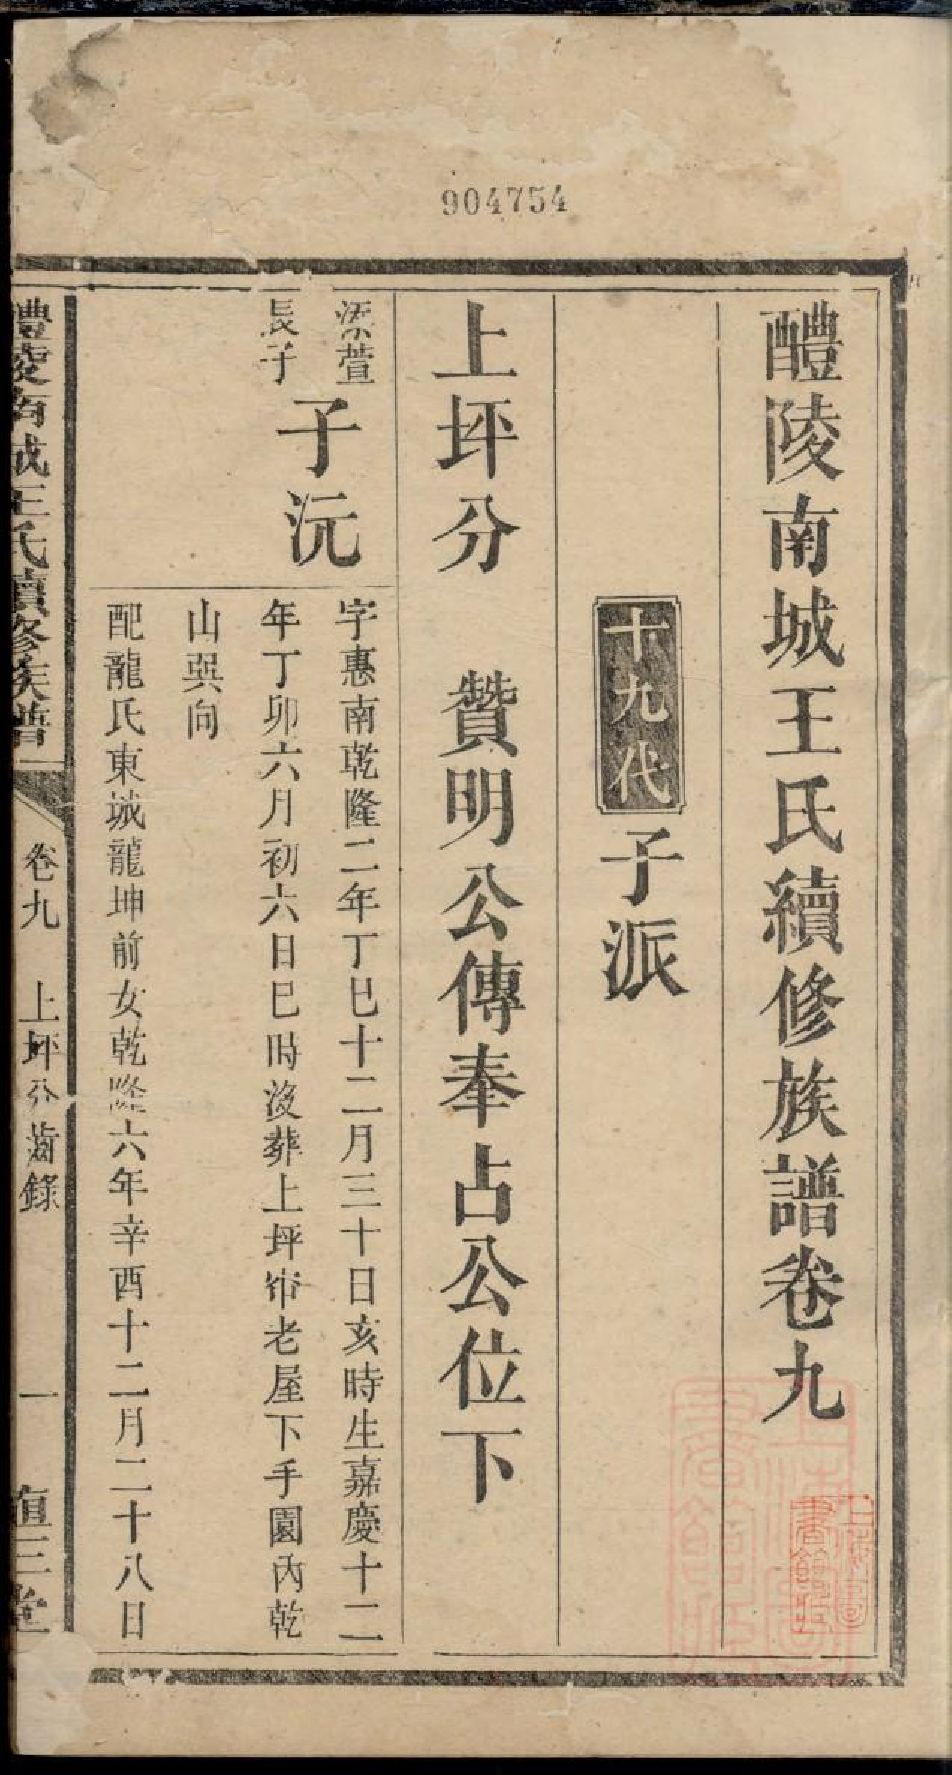 904754
醴陵南城王氏續修族譜卷九
十九代 子派
上坪分 贊明公傳奉占公位下
深萱
長子
子沅
字惠南乾隆二年丁巳十二月三十日亥時生嘉慶十二
年丁卯六月初六日巳時沒葬上坪老屋下手園內乾
山巽向
配龍氏東城龍坤前女乾隆六年辛酉十二月二十八日
醴陵南城王氏續修族譜
卷九 上坪分齒錄
一
三堂
上海圖書館藏